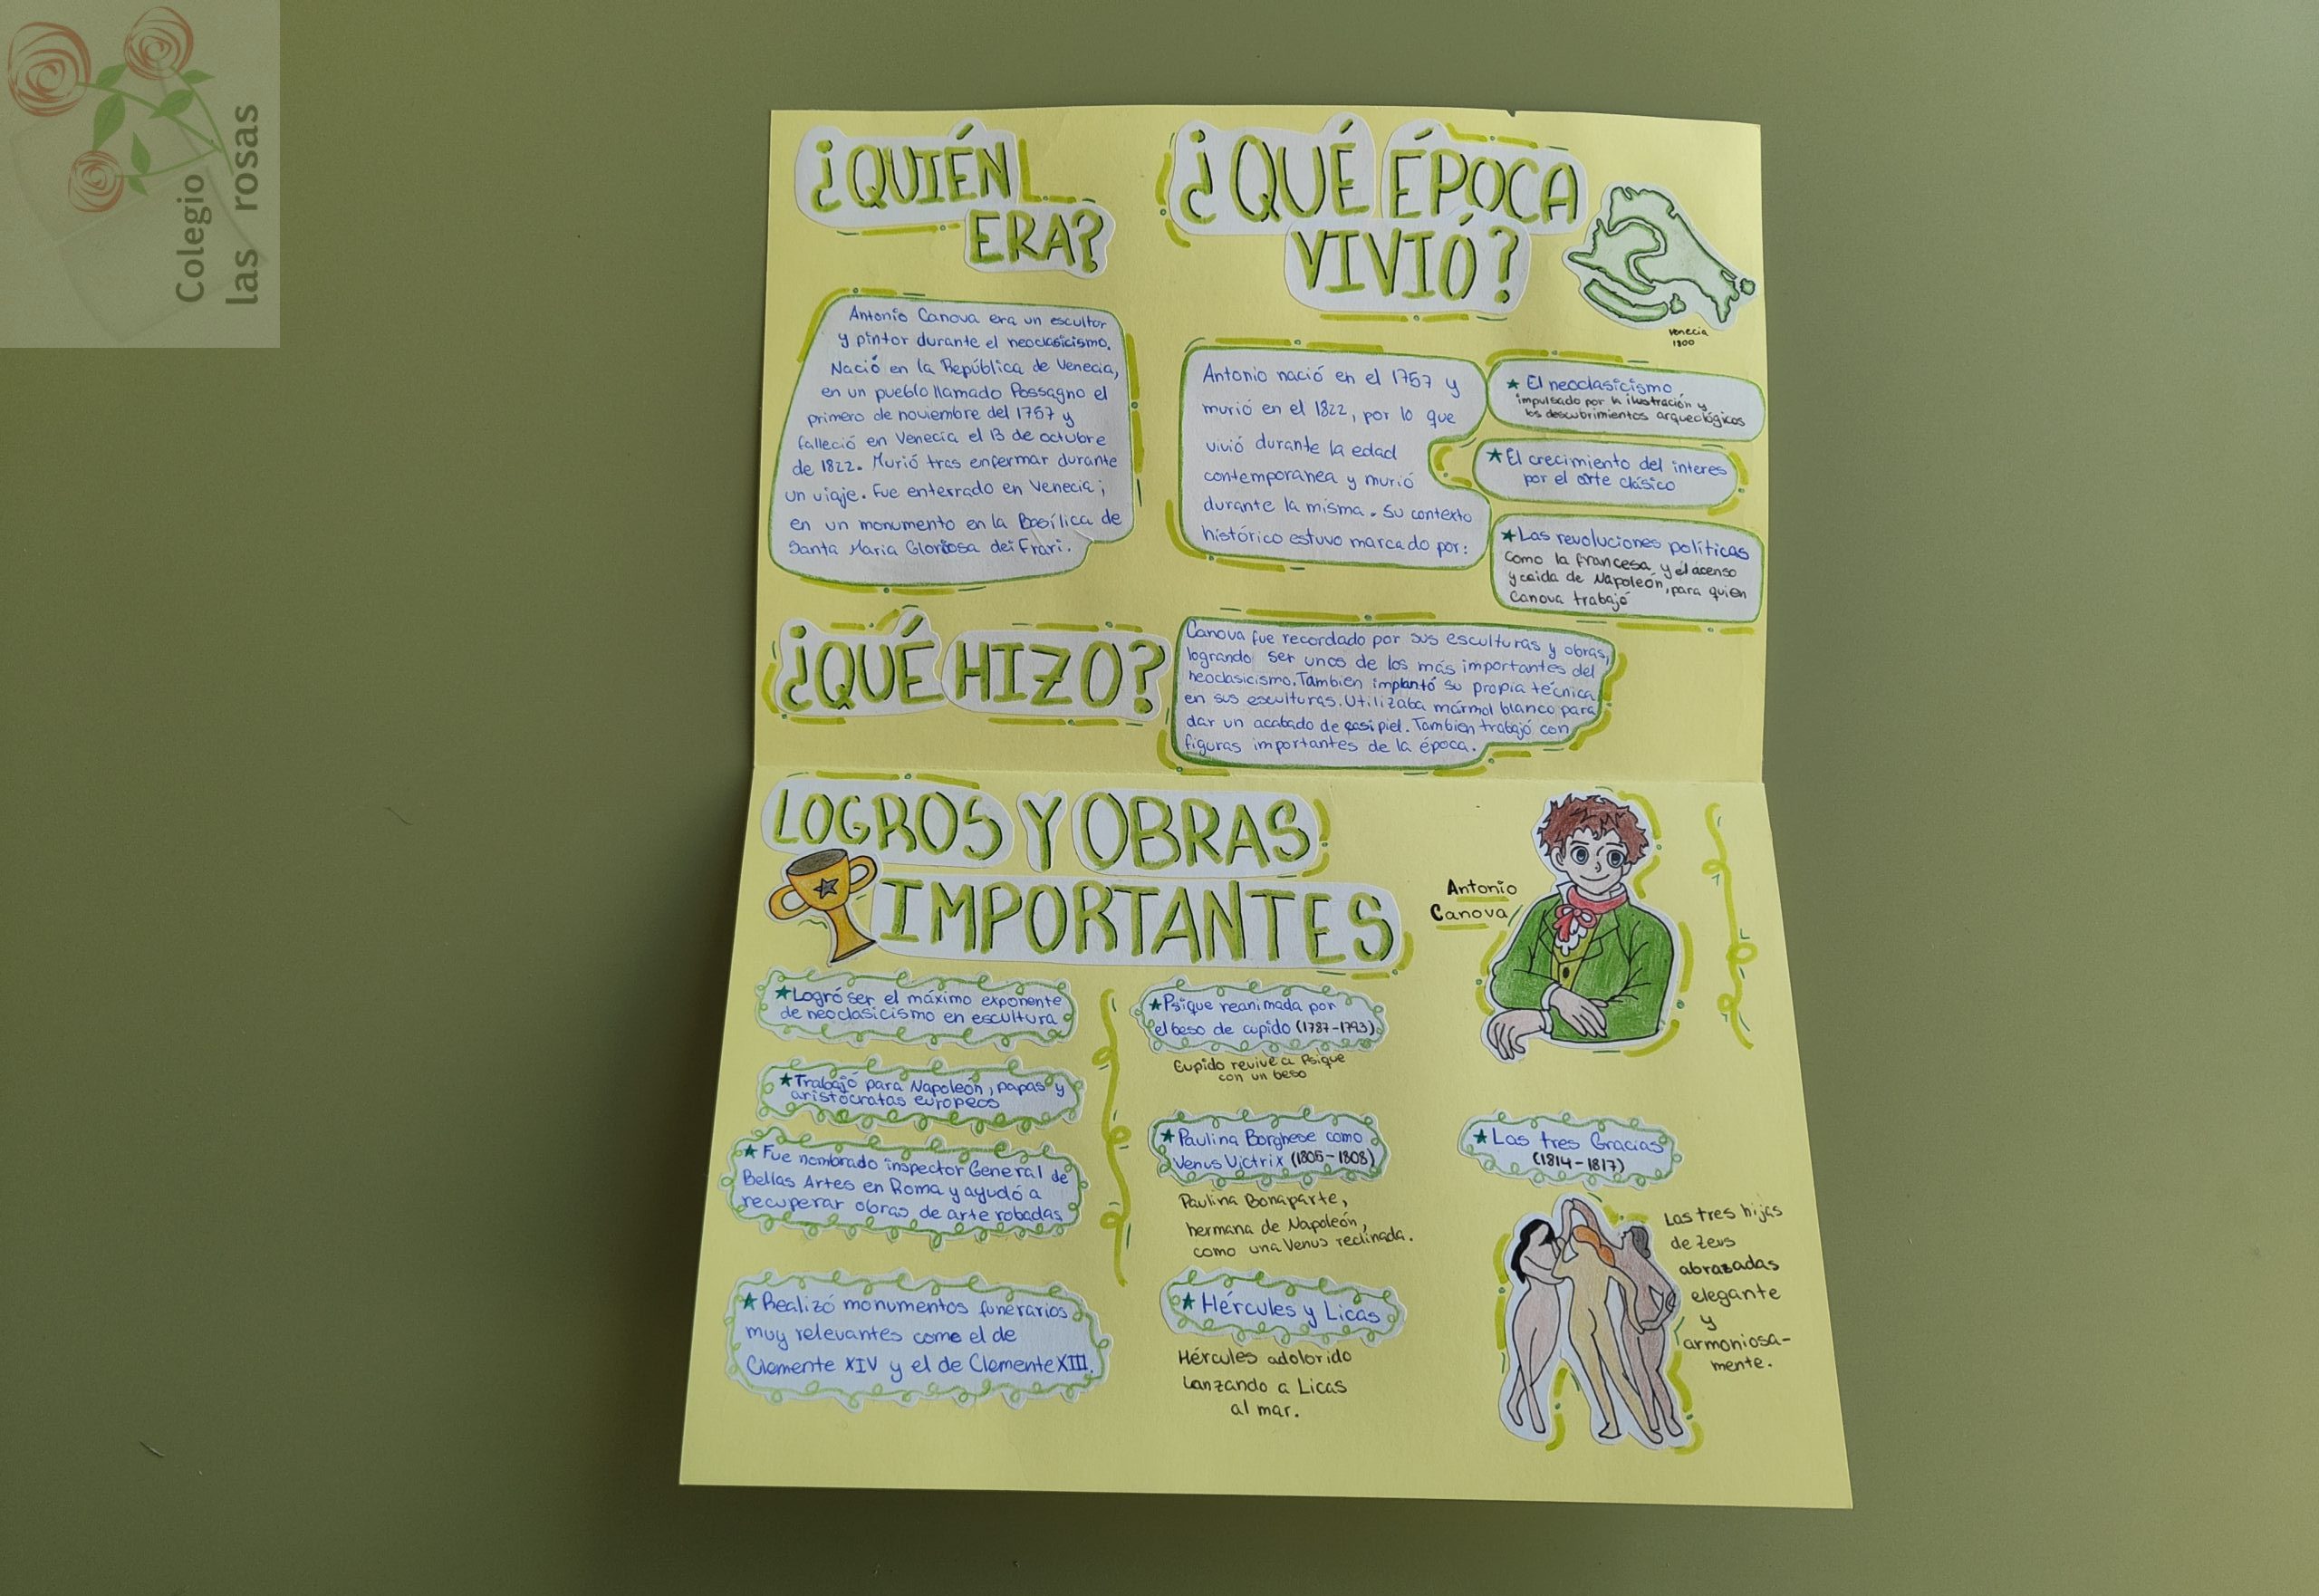 Colegio
las rosas
¿QUIÉN
ERA?
Antonio Canova era un escultor
y pintor durante el neoclasicismo.
Nació en la República de Venecia,
en un pueblo llamado Possagno el
primero de noviembre del 1757 y
falleció en Venecia el 13 de octubre
de 1822. Murió tras enfermar durante
un viaje. Fue enterrado en Venecia;
en un monumento en la Basílica de
Santa Maria Gloriosa dei Frari.
¿QUÉ ÉPOCA
VIVIÓ?
Venecia
1800
Antonio nació en el 1757 y
murió en el 1822, por lo que
vivió durante la edad
contemporanea y murió
durante la misma. Su contexto
histórico estuvo marcado por:
★ El neoclasicismo
impulsado por la ilustración y
los descubrimientos arqueológicos
★ El crecimiento del interes
por el arte clásico
★ Las revoluciones políticas
como la francesa, y el acenso
y caida de Napoleón, para quien
Canova trabajó
¿QUÉ HIZO?
Canova fue recordado por sus esculturas y obras,
logrando ser unos de los más importantes del
neoclasicismo. Tambien implantó su propia técnica
en sus esculturas. Utilizaba mármol blanco para
dar un acabado de casi piel. Tambien trabajó con
figuras importantes de la época.
LOGROS Y OBRAS
IMPORTANTES
Antonio
Canova
★ Logró ser el máximo exponente
de neoclasicismo en escultura
★ Trabajó para Napoleón, papas y
aristócratas europeos
★ Fue nombrado inspector General de
Bellas Artes en Roma y ayudó a
recuperar obras de arte robadas
★ Realizó monumentos funerarios
muy relevantes como el de
Clemente XIV y el de Clemente XIII.
★ Psique reanimada por
el beso de cupido (1787-1793)
Cupido revive a Psique
con un beso
★ Paulina Borghese como
Venus Victrix (1805-1808)
Paulina Bonaparte,
hermana de Napoleón,
como una Venus reclinada.
★ Hércules y Licas
Hércules adolorido
lanzando a Licas
al mar.
★ Las tres Gracias
(1814-1817)
Las tres hijas
de Zeus
abrazadas
elegante
y
armoniosa-
mente.